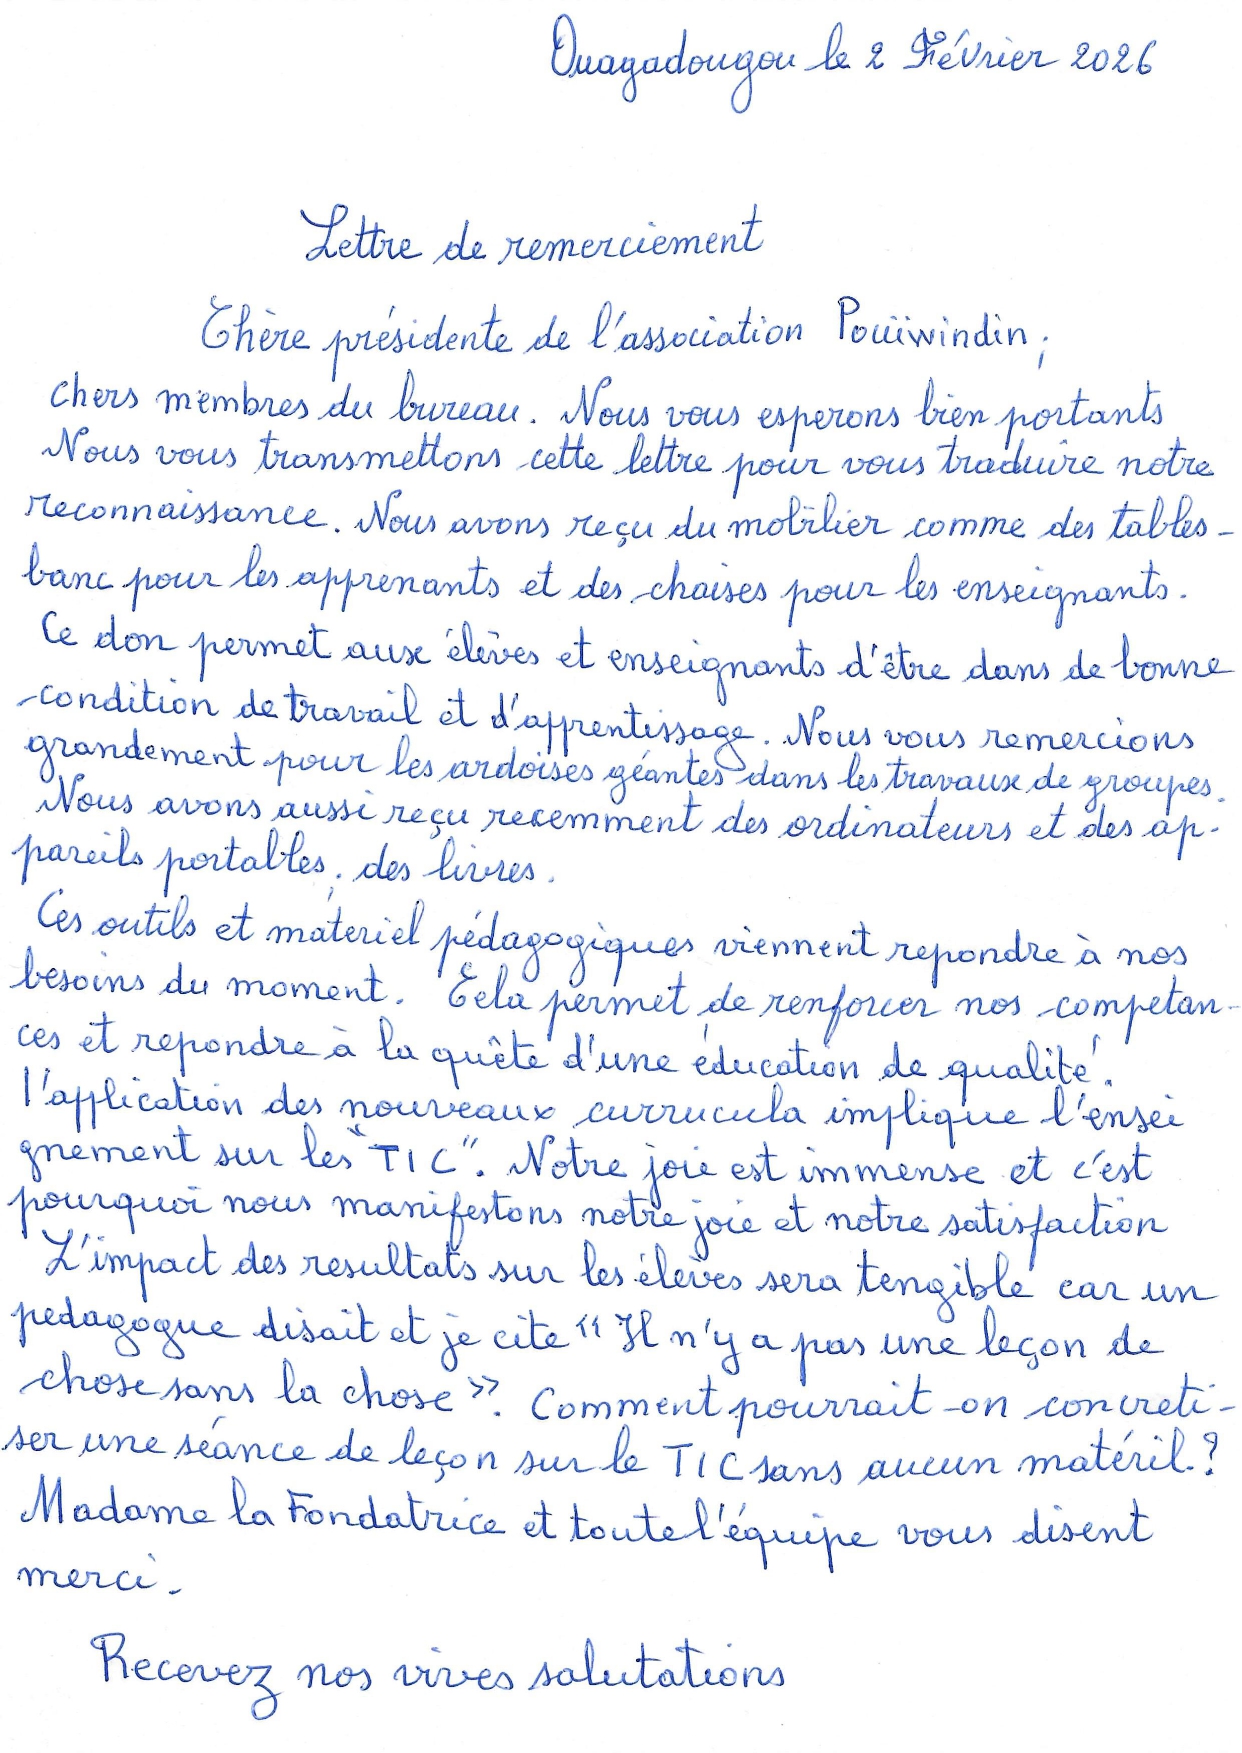 Ouagadougou le 2 Février 2026
Lettre de remerciement
Chère présidente de l'association Pouiiwindin,
chers membres du bureau. Nous vous esperons bien portants
Nous vous transmettons cette lettre pour vous traduire notre
reconnaissance. Nous avons reçu du mobilier comme des tables-
banc pour les apprenants et des chaises pour les enseignants.
Ce don permet aux élèves et enseignants d'être dans de bonne
condition de travail et d'apprentissage. Nous vous remercions
grandement pour les ardoises géantes dans les travaux de groupes.
Nous avons aussi reçu recemment des ordinateurs et des ap-
pareils portables, des livres.
Ces outils et matériel pédagogiques viennent repondre à nos
besoins du moment. Cela permet de renforcer nos competan-
ces et repondre à la quête d'une éducation de qualité.
l'application des nouveaux currucula implique l'ensei
gnement sur les "TIC". Notre joie est immense et c'est
pourquoi nous manifestons notre joie et notre satisfaction
L'impact des resultats sur les élèves sera tengible car un
pedagogue disait et je cite "Il n'y a pas une leçon de
chose sans la chose". Comment pourrait-on concreti-
ser une séance de leçon sur le TIC sans aucun matéril.?
Madame la Fondatrice et toute l'équipe vous disent
merci.
Recevez nos vives salutations